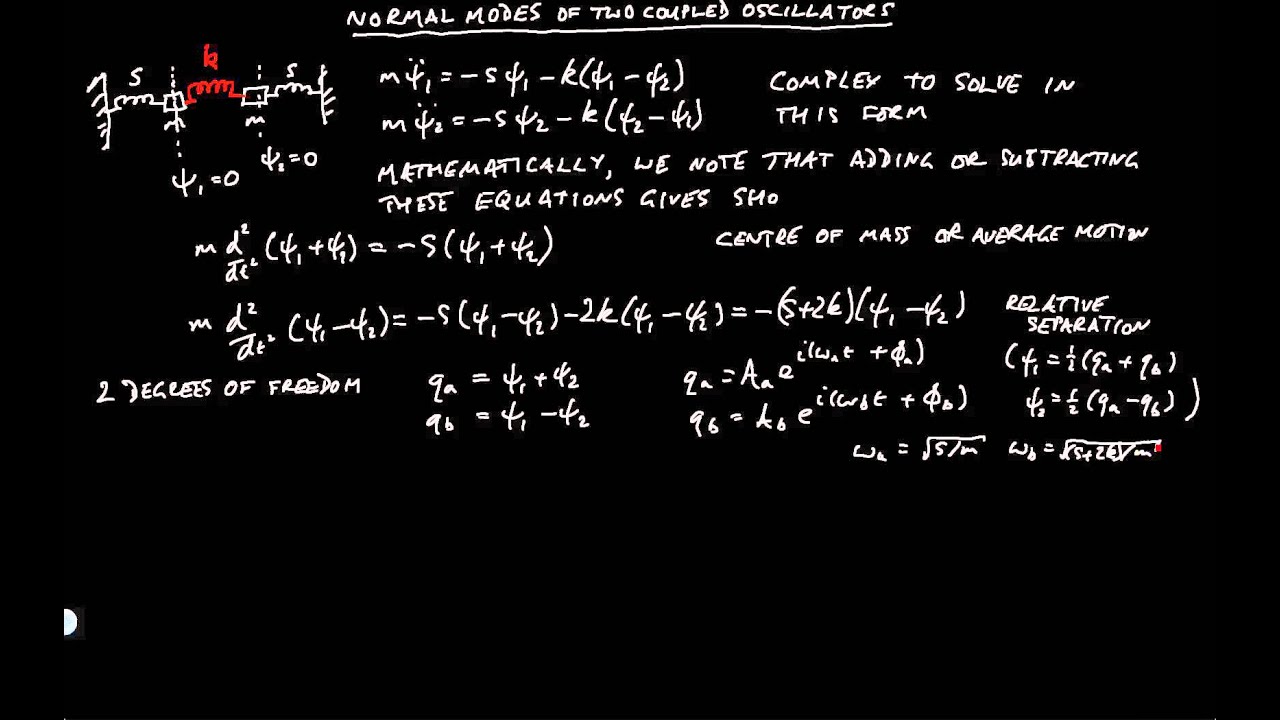 NORMAL MODES OF TWO COUPLED OSCILLATORS
s k s
m m
ψ₁=0 ψ₂=0
mψ̈₁ = -sψ₁ - k(ψ₁ - ψ₂)
mψ̈₂ = -sψ₂ - k(ψ₂ - ψ₁)
COMPLEX TO SOLVE IN
THIS FORM
MATHEMATICALLY, WE NOTE THAT ADDING OR SUBTRACTING
THESE EQUATIONS GIVES SHO
m d²/dt² (ψ₁+ψ₂) = -s(ψ₁+ψ₂) CENTRE OF MASS OR AVERAGE MOTION
m d²/dt² (ψ₁-ψ₂) = -s(ψ₁-ψ₂) - 2k(ψ₁-ψ₂) = -(s+2k)(ψ₁-ψ₂) RELATIVE
SEPARATION
2 DEGREES OF FREEDOM
qₐ = ψ₁+ψ₂
q_b = ψ₁-ψ₂
qₐ = Aₐ e^{i(ωₐt + ϕₐ)}
q_b = A_b e^{i(ω_bt + ϕ_b)}
(ψ₁ = ½(qₐ + q_b)
ψ₂ = ½(qₐ - q_b))
ωₐ = √(s/m) ω_b = √((s+2k)/m)